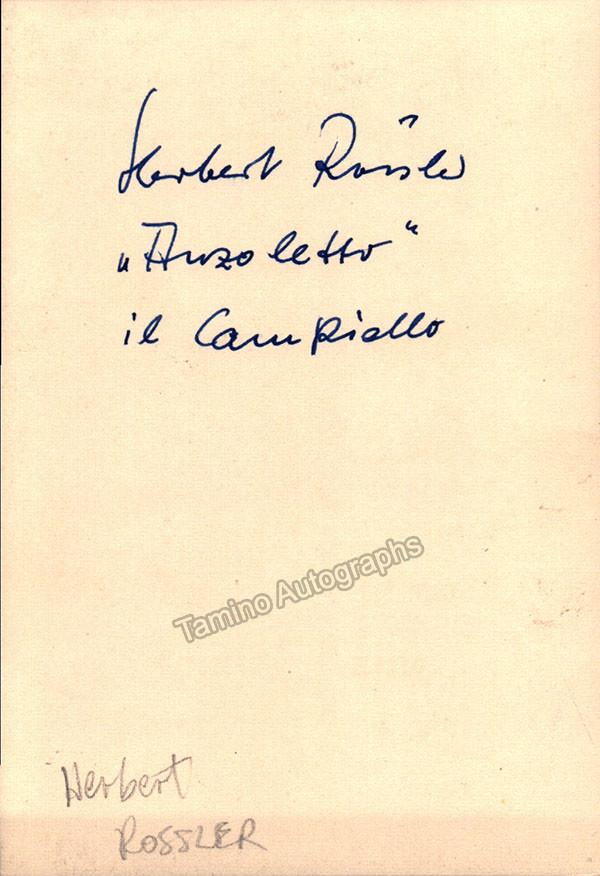 Herbert Rössler
„Anzoletto“
il Campiello
Tamino Autographs
Herbert
ROSSLER